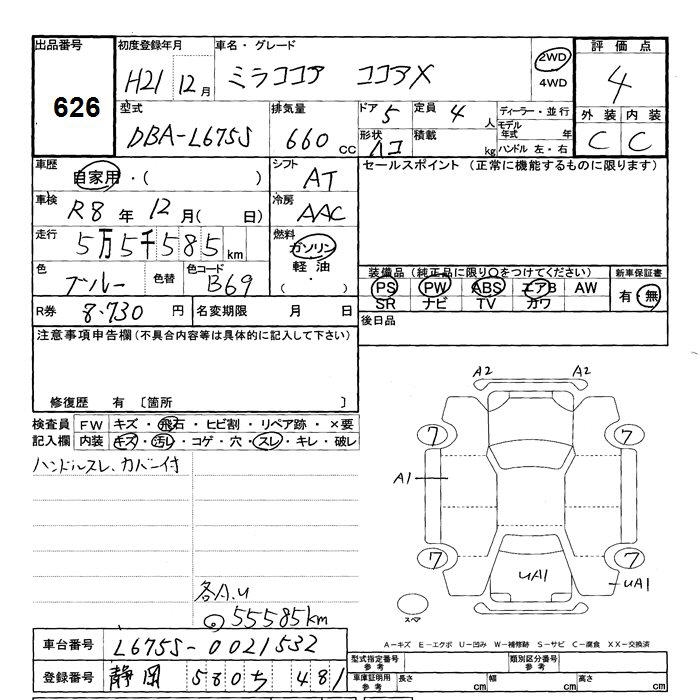 出品番号 初度登録年月 車名・グレード 評価点
626 H21 12月 ミラココア ココアX 2WD 4WD 4
型式 排気量 ドア 5 定員 4人 ディーラー・並行 外装 内装
DBA-L675S 660cc 形状 ハコ 積載 kg モデル年式 年 C C
ハンドル 左・右
車歴 自家用・( ) シフト AT セールスポイント (正常に機能するものに限ります)
車検 R8年12月( 日) 冷房 AAC
走行 5万5千585km 燃料 ガソリン 軽油 ( ・ )
色 ブルー 色替 色コード B69 装備品 (純正品に限り○をつけてください) 新車保証書
PS PW ABS エアB AW 有・無
SR ナビ TV カワ
R券 8.730円 名変期限 月 日 後日品
注意事項申告欄(不具合内容等は具体的に記入して下さい)
修復歴 有 [箇所 ]
検査員 FW キズ・飛石・ヒビ割・リペア跡・×要
記入欄 内装 キズ・汚レ・コゲ・穴・スレ・キレ・破レ
ハンドルスレ、カバー付
A2 A2
7 7
A1
7 7
UA1 UA1
スペア
各A.U
55585km
A-キズ E-エクボ U-凹み W-補修跡 S-サビ C-腐食 XX-交換済
車台番号 L675S-0021532 型式指定番号 参考 類別区分番号 参考
登録番号 静岡 580 ち 481 車庫証明用 参考 長さ cm 幅 cm 高さ cm